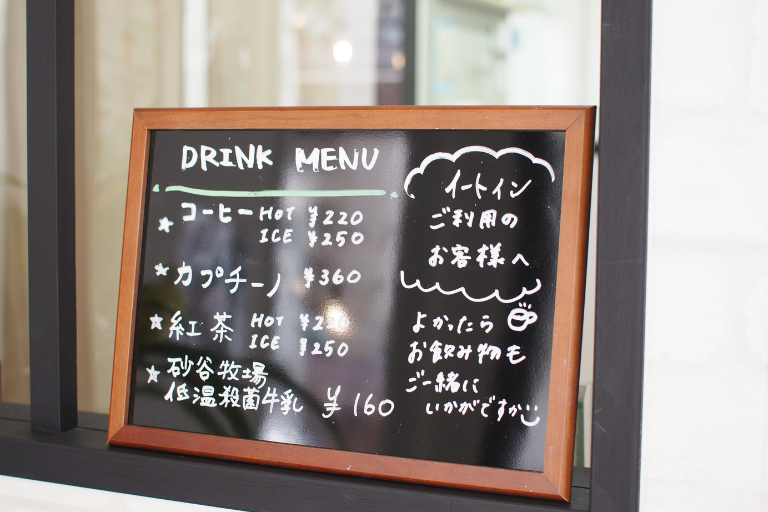 DRINK MENU
★コーヒー HOT ¥220
ICE ¥250
★カプチーノ ¥360
★紅茶 HOT
ICE ¥250
★砂谷牧場
低温殺菌牛乳 ¥160
イートイン
ご利用の
お客様へ
よかったら
お飲み物も
ご一緒に
いかがですか